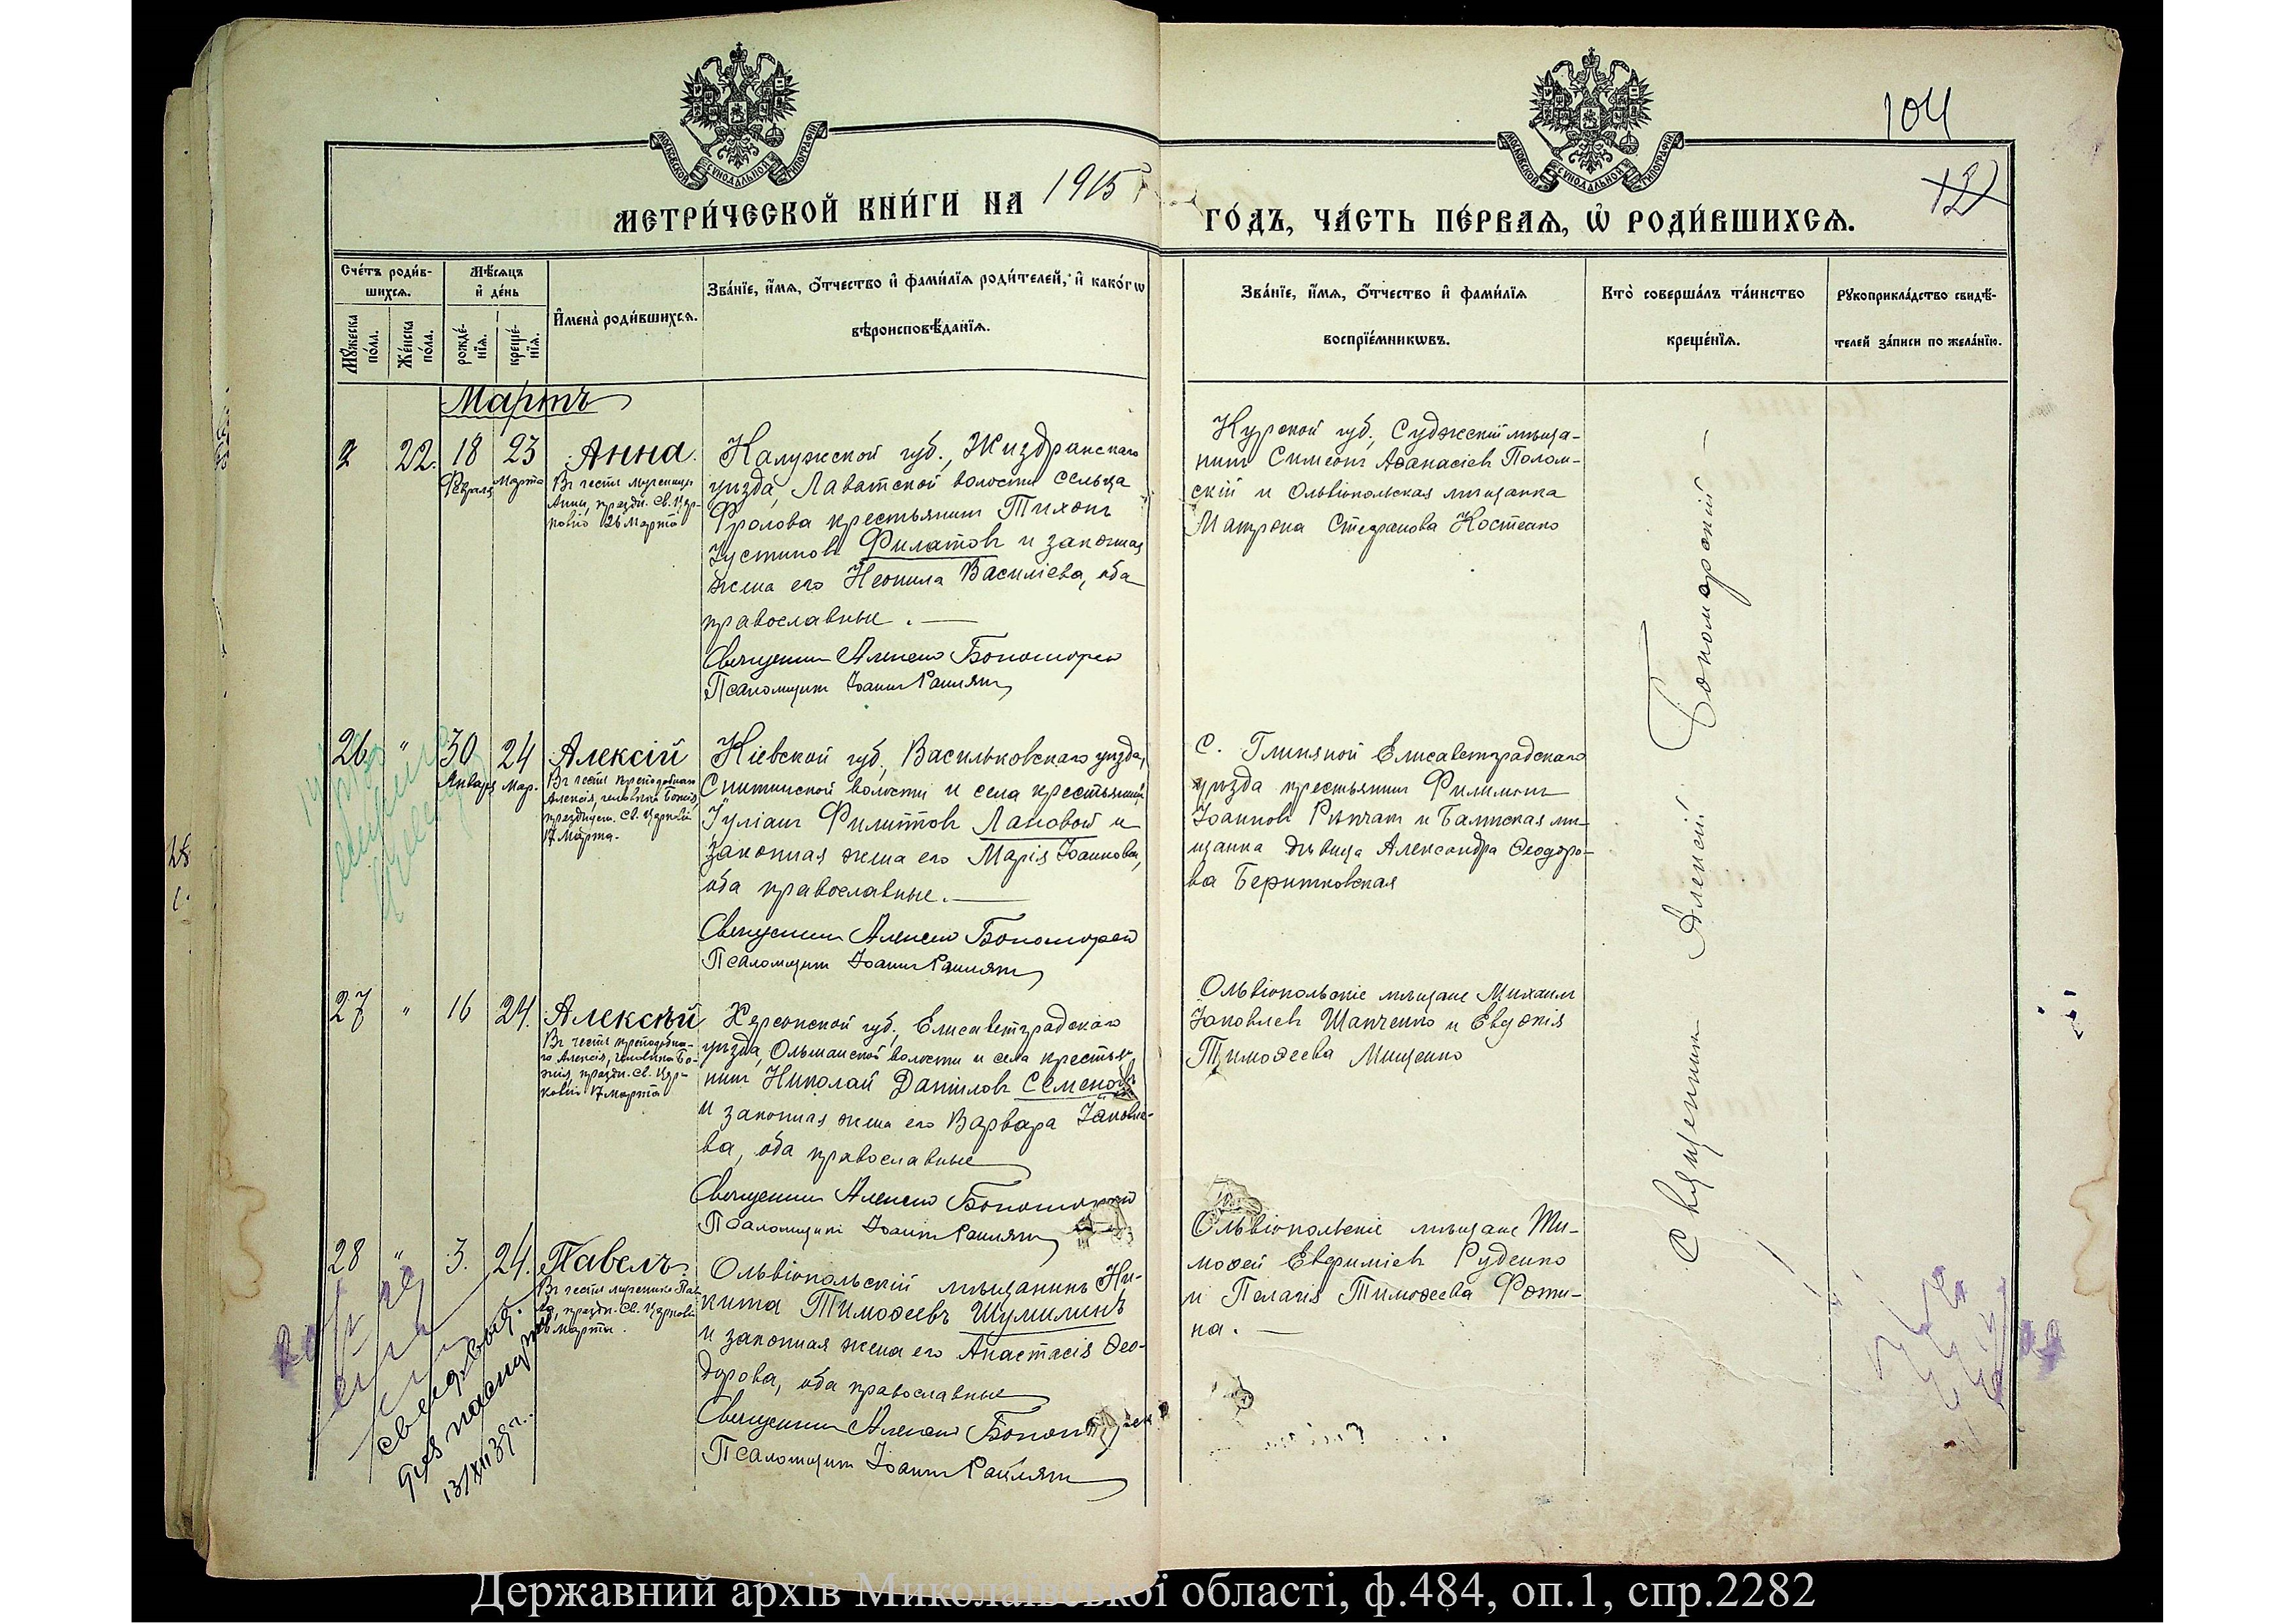 104
12
МОСКОВСКОЙ СѴНОДАЛЬНОЙ ТИПОГРАФІИ
МОСКОВСКОЙ СѴНОДАЛЬНОЙ ТИПОГРАФІИ
МЕТРИ́ЧЕСКОЙ КНИ́ГИ НА 1915 г.
ГО́ДЪ, ЧА́СТЬ ПЕ́РВАѦ, Ѡ҆ РОДИ́ВШИХСѦ.
Сче́тъ роди́в-
шихсѧ.
Мꙋ́жеска
по́ла.
Же́нска
по́ла.
Мѣ́сѧцъ
и҆ де́нь
рожде́-
нїѧ.
креще́-
нїѧ.
И҆мена̀ роди́вшихсѧ.
Зва́нїе, и҆́мѧ, ѻ҆́тчество и҆ фамѝлїѧ роди́телей, и҆ како́гѡ
вѣроисповѣ́данїѧ.
Зва́нїе, и҆́мѧ, ѻ҆́тчество и҆ фами́лїѧ
воспрїе́мникѡвъ.
Кто̀ соверша́лъ та́инство
креще́нїѧ.
Рꙋкоприкла́дство свидѣ́-
телей за́писи по жела́нїю.
Мартъ
22. 18 23 Анна.
Февраля Марта
Въ честь мученицы
Анны, праздн. Св. Цер-
ковію 26 Марта
Калужской губ., Жиздранскаго
уѣзда, волости сельца
Фролова крестьянинъ Тихонъ
Іустиновъ Филатовъ и законная
жена его Неонила Василіева, оба
православные.
Священникъ Алексій
Псаломщикъ Іоаннъ
Курской губ., Суджскій мѣща-
нинъ Симеонъ Аѳанасіевъ Полом-
скій и Ольвіопольская мѣщанка
Матрона Стефанова Костенко
26 " 30 24 Алексій
Января Мар.
Въ честь преподобнаго
Алексія, человѣка Божія,
празднуем. Св. Церковію
17 Марта.
Кіевской губ., Васильковскаго уѣзда,
волости и села крестьянинъ
Іуліанъ Филипповъ Лановой и
законная жена его Марія Іоаннова,
оба православные.
Священникъ Алексій
Псаломщикъ Іоаннъ
С. Глиняной Елисаветградскаго
уѣзда крестьянинъ Филимонъ
Іоанновъ и Балтская мѣ-
щанка дѣвица Александра Ѳеодоро-
ва
27 " 16 24. Алексѣй
Въ честь преподобна-
го Алексія, человѣка Бо-
жія, праздн. Св. Цер-
ковію 17 Марта
Херсонской губ., Елисаветградскаго
уѣзда, Ольшанской волости и села крестья-
нинъ Николай Даниловъ Семеновъ
и законная жена его Варвара Іаковле-
ва, оба православные
Священникъ Алексій
Псаломщикъ Іоаннъ
Ольвіопольскіе мѣщане Михаилъ
Іаковлевъ Шапченко и Евдокія
Тимоѳеева Мищенко
28 " 3. 24. Павелъ
Въ честь мученика Пав-
ла, праздн. Св. Церковію
Марта.
Ольвіопольскій мѣщанинъ Ни-
кита Тимоѳеевъ Шумилинъ
и законная жена его Анастасія Ѳео-
дорова, оба православные
Священникъ Алексій
Псаломщикъ Іоаннъ
Ольвіопольскіе мѣщане Ти-
моѳей Евфиміевъ Руденко
и Пелагія Тимоѳеева Фоти-
на.
Священникъ Алексій
для паспорта
13/XII 39 г.
Державний архів Миколаївської області, ф.484, оп.1, спр.2282